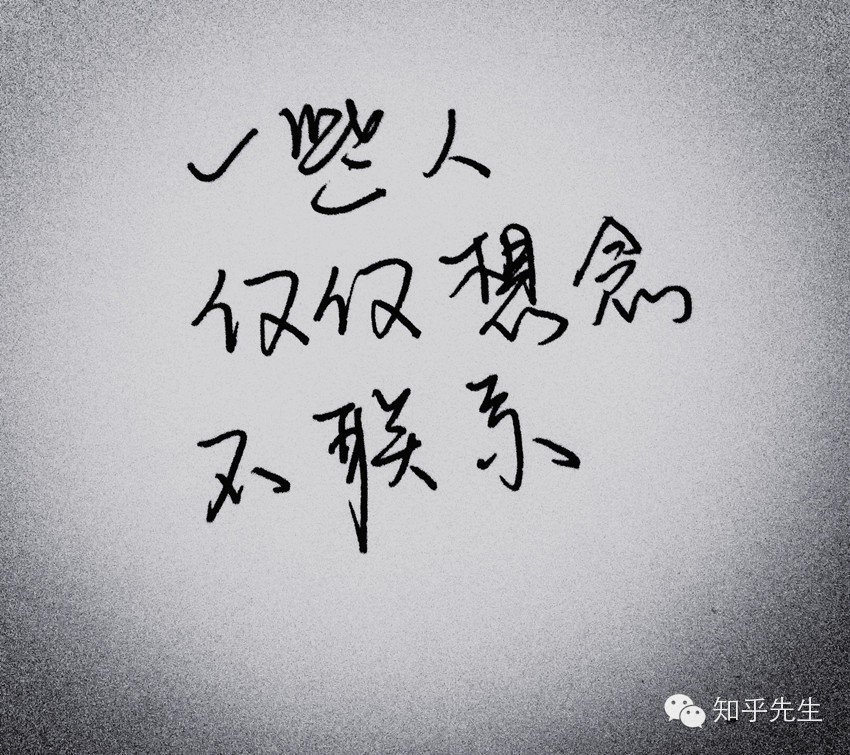 一些人
仅仅想念
不联系
知乎先生